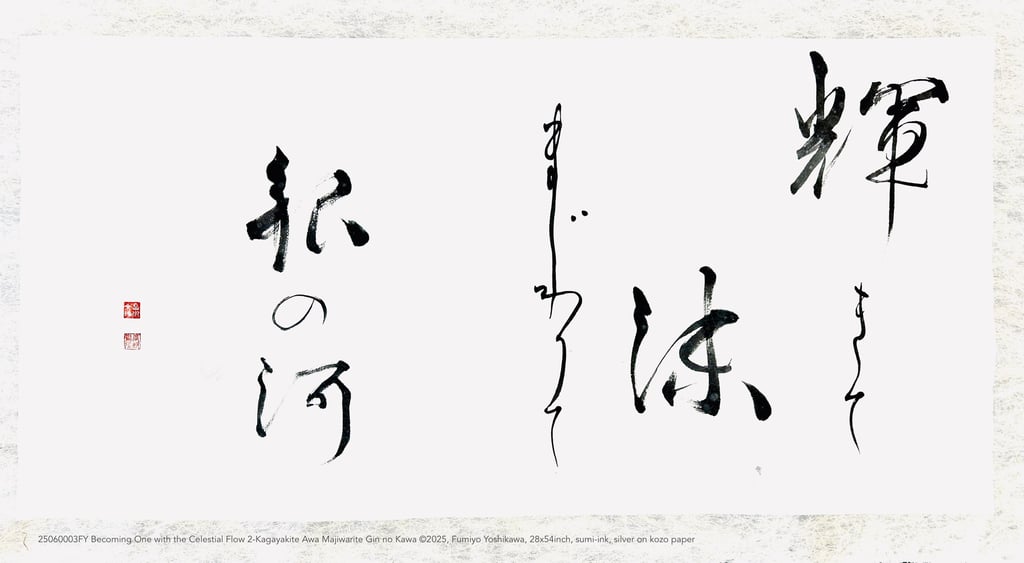 輝きて
沫
まじわりて
銀の河
25060003FY Becoming One with the Celestial Flow 2-Kagayakite Awa Majiwarite Gin no Kawa ©2025, Fumiyo Yoshikawa, 28x54inch, sumi-ink, silver on kozo paper